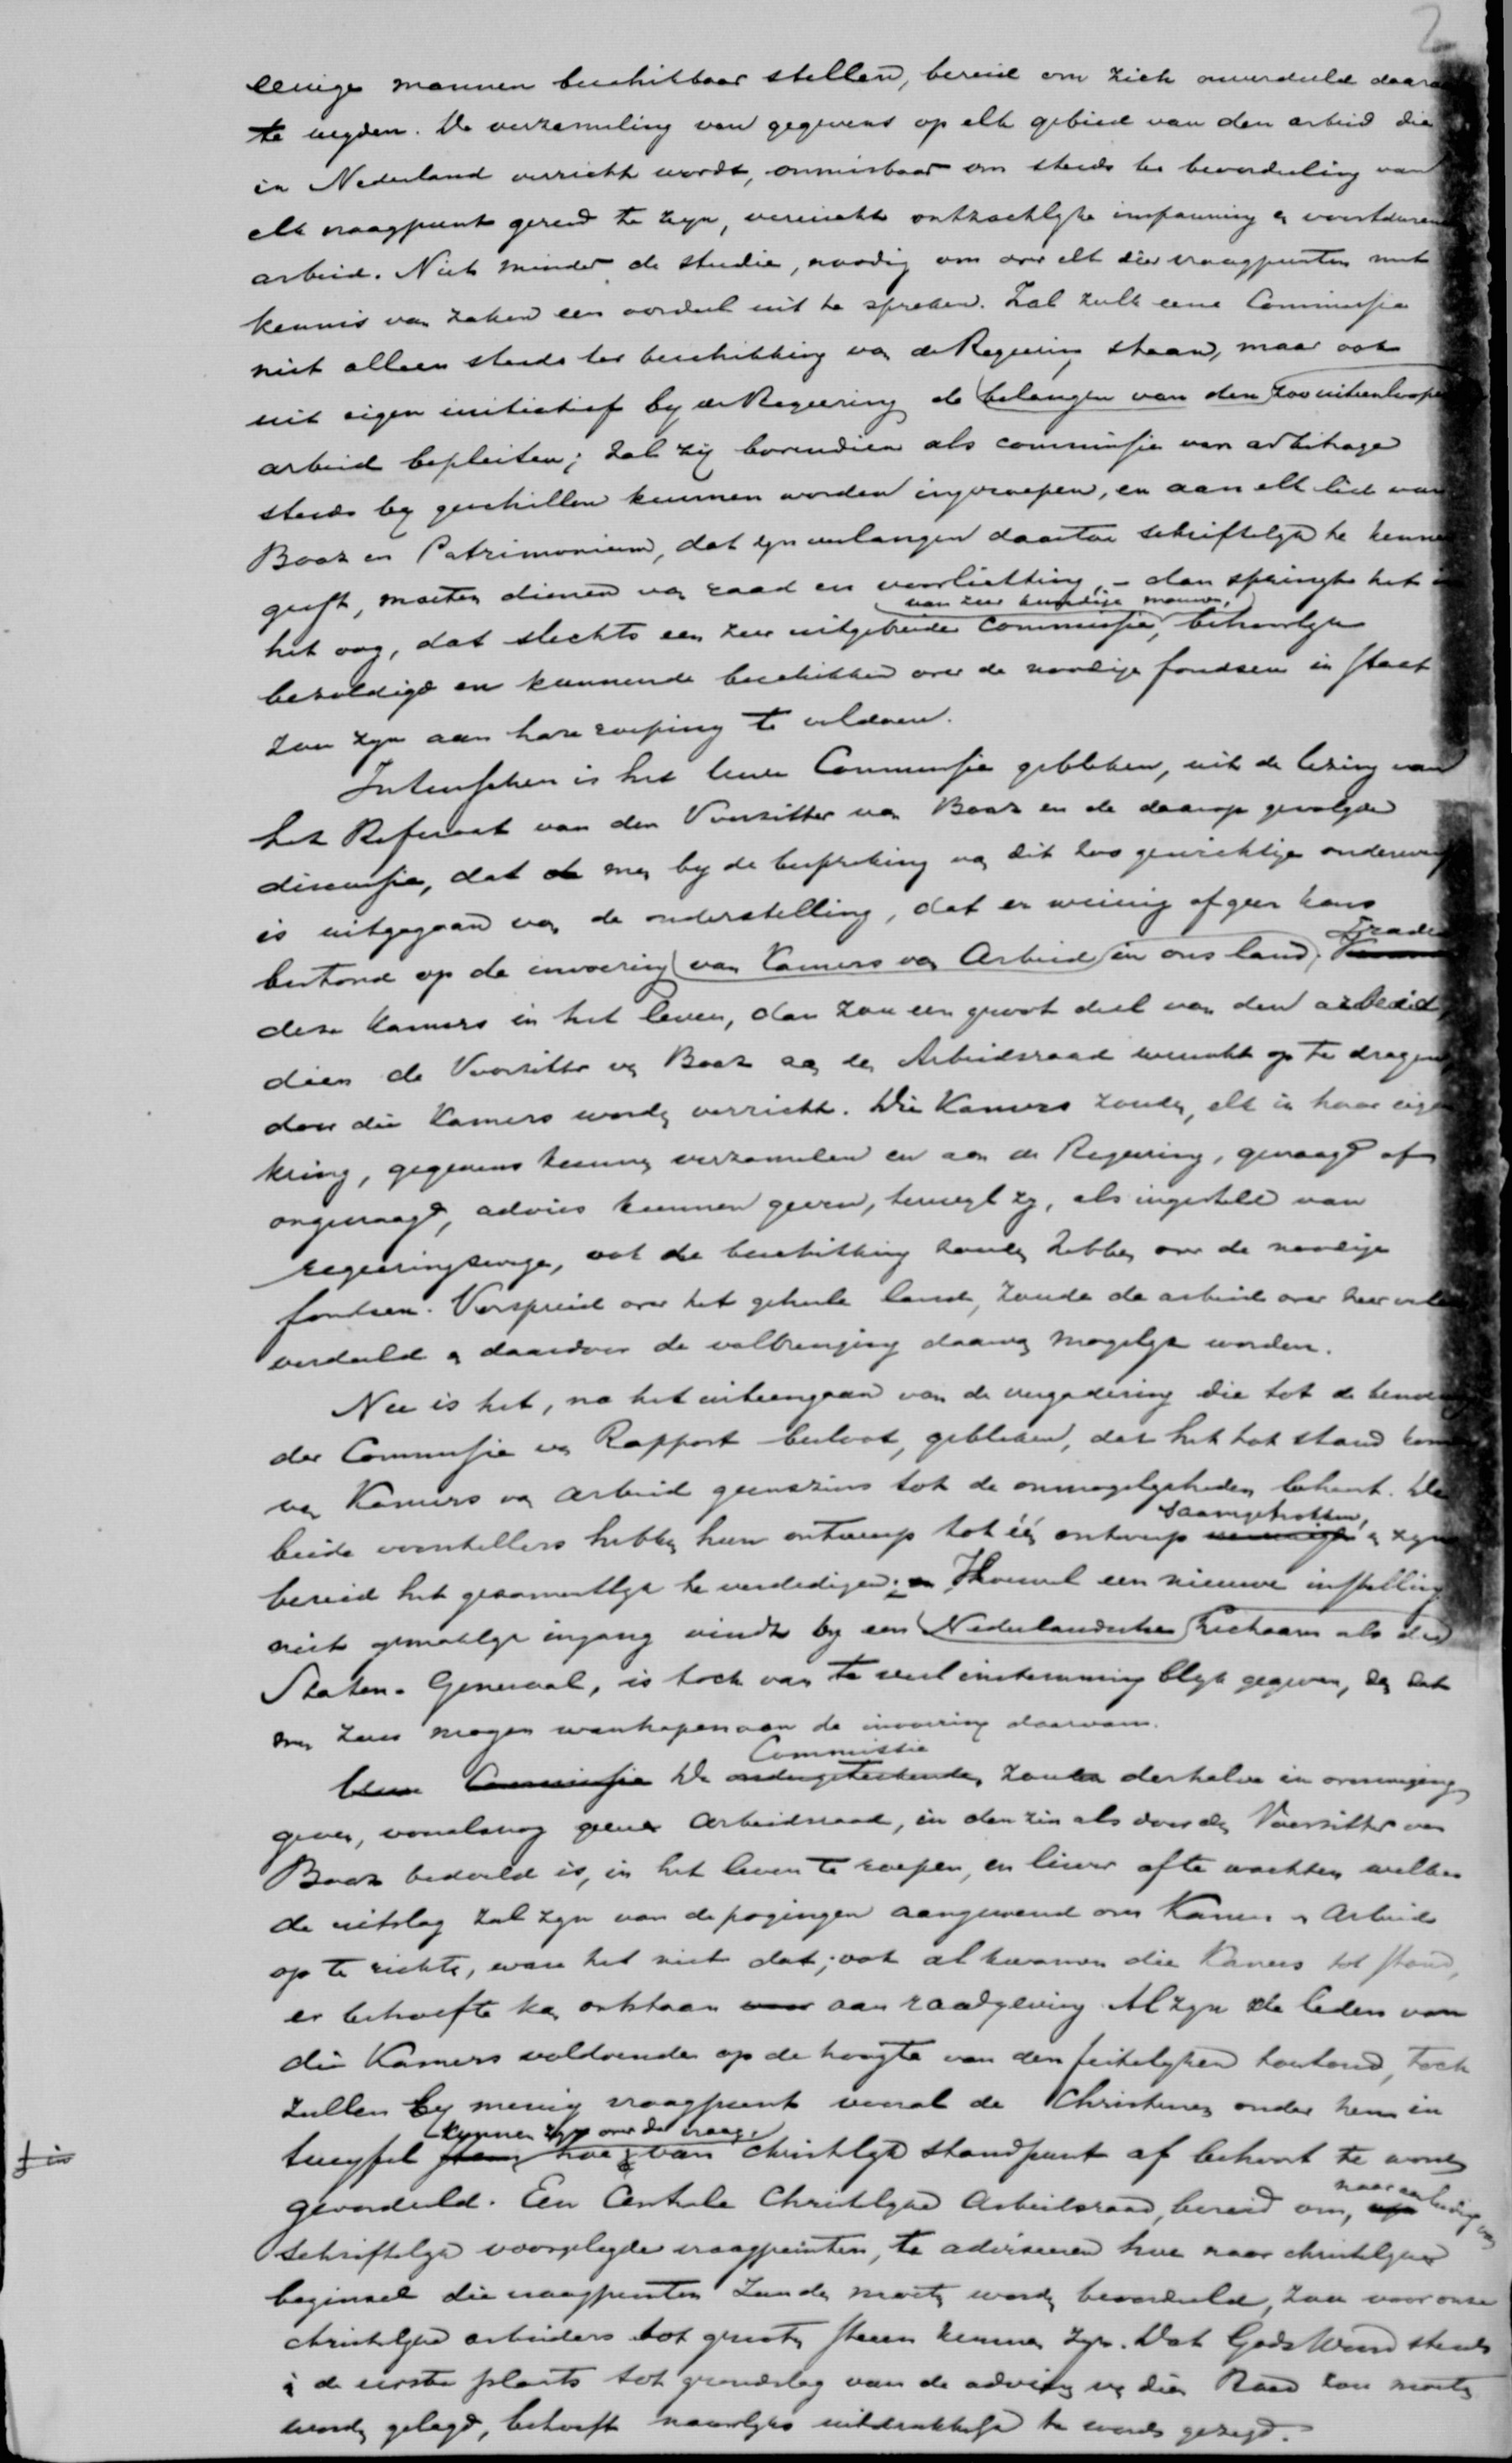 2
eenige mannen beschikbaar stellen, bereid om zich onverdeeld daaraan
te wyden. De verzameling van gegevens op elk gebied van den arbeid die
in Nederland verricht wordt, onmisbaar om steeds ter beoordeeling van
elk vraagpunt gereed te zyn, vereischt ontzachlyke inspanning & voortdurend
arbeid. Niet minder de studie, noodig om over elk dier vraagpunten met
kennis van zaken een oordeel uit te spreken. Zal zulk eene Commissie
niet alleen steeds ter beschikking van de Regeering staan, maar ook
uit eigen initiatief by de Regeering de belangen van den zoo uiteenloopen
arbeid bepleiten; zal zij bovendien als commissie van arbitrage
steeds by geschillen kunnen worden ingeroepen, en aan elk lid van
Boaz en Patrimonium, dat zyn verlangen daartoe schriftelyk te kennen
geeft, moeten dienen van raad en voorlichting, – dan springt het in
van zeer kundige mannen,
het oog, dat slechts een zeer uitgebreide Commissie, behoorlyk
bezoldigd en kunnende beschikken over de noodige fondsen in staat
zou zyn aan hare roeping te voldoen.
Intusschen is het Uwe Commissie gebleken, uit de lezing van
het Referaat van den Voorzitter van Boaz en de daarop gevolgde
discussie, dat men by de bespreking van dit zoo gewichtige onderwerp
is uitgegaan van de onderstelling, dat er weinig of geen kans
bestond op de invoering van Kamers van Arbeid in ons land. Traden
deze Kamers in het leven, dan zou een groot deel van den arbeid,
dien de Voorzitter van Boaz aan den Arbeidsraad wenscht op te dragen,
door die Kamers worden verricht. Die Kamers zouden, elk in haar eigen
kring, gegevens kunnen verzamelen en aan de Regeering, gevraagd of
ongevraagd, advies kunnen geven, terwyl zy, als ingesteld van
regeeringswege, ook de beschikking zouden hebben over de noodige
fondsen. Verspreid over het geheele land, zoude de arbeid over zeer velen
verdeeld & daardoor de volbrenging daarvan mogelyk worden.
Nu is het, na het uiteengaan van de vergadering die tot de benoeming
der Commissie van Rapport besloot, gebleken, dat het tot stand komen
van Kamers van Arbeid geenszins tot de onmogelykheden behoort. De
saamgetrokken,
beide voorstellers hebben hun ontwerp tot één ontwerp & zyn
bereid het gezamentlyk te verdedigen. Hoewel een nieuwe instelling
niet gemaklyk ingang vindt by een Nederlandsche lichaam als de
Staten-Generaal, is toch van te veel instemming blyk gegeven, dan dat
men zou mogen wanhopen aan de invoering daarvan.
Commissie
Uwe Commissie De ondergeteekenden zoude derhalve in overweging
geven, vooralsnog geenen Arbeidsraad, in den zin als door den Voorzitter van
Boaz bedoeld is, in het leven te roepen, en liever af te wachten welke
de uitslag zal zyn van de pogingen aangewend om Kamers v. Arbeid
op te richten, ware het niet dat, ook al kwamen die Kamers tot stand,
er behoefte kan ontstaan aan raadgeving. Al zyn de leden van
die Kamers voldoende op de hoogte van den feitelyken toestand, toch
zullen by menig vraagpunt vooral de Christenen onder hen in
kunnen zyn over de vraag,
twyfel hoe van christelyk standpunt af behoort te worden
geoordeeld. Een Centrale Christelyke Arbeidsraad, bereid om, naar aanleiding van
schriftelyk voorgelegde vraagpunten, te adviseeren hoe naar christelyke
beginsel die vraagpunten zouden moeten worden beoordeeld, zou voor onze
christelyke arbeiders tot grooten steun kunnen zyn. Dat Gods Woord steeds
in de eerste plaats tot grondslag van de adviezen van dien Raad zou moeten
worden gelegd, behoeft nauwlyks uitdrukkelyk te worden gezegd.